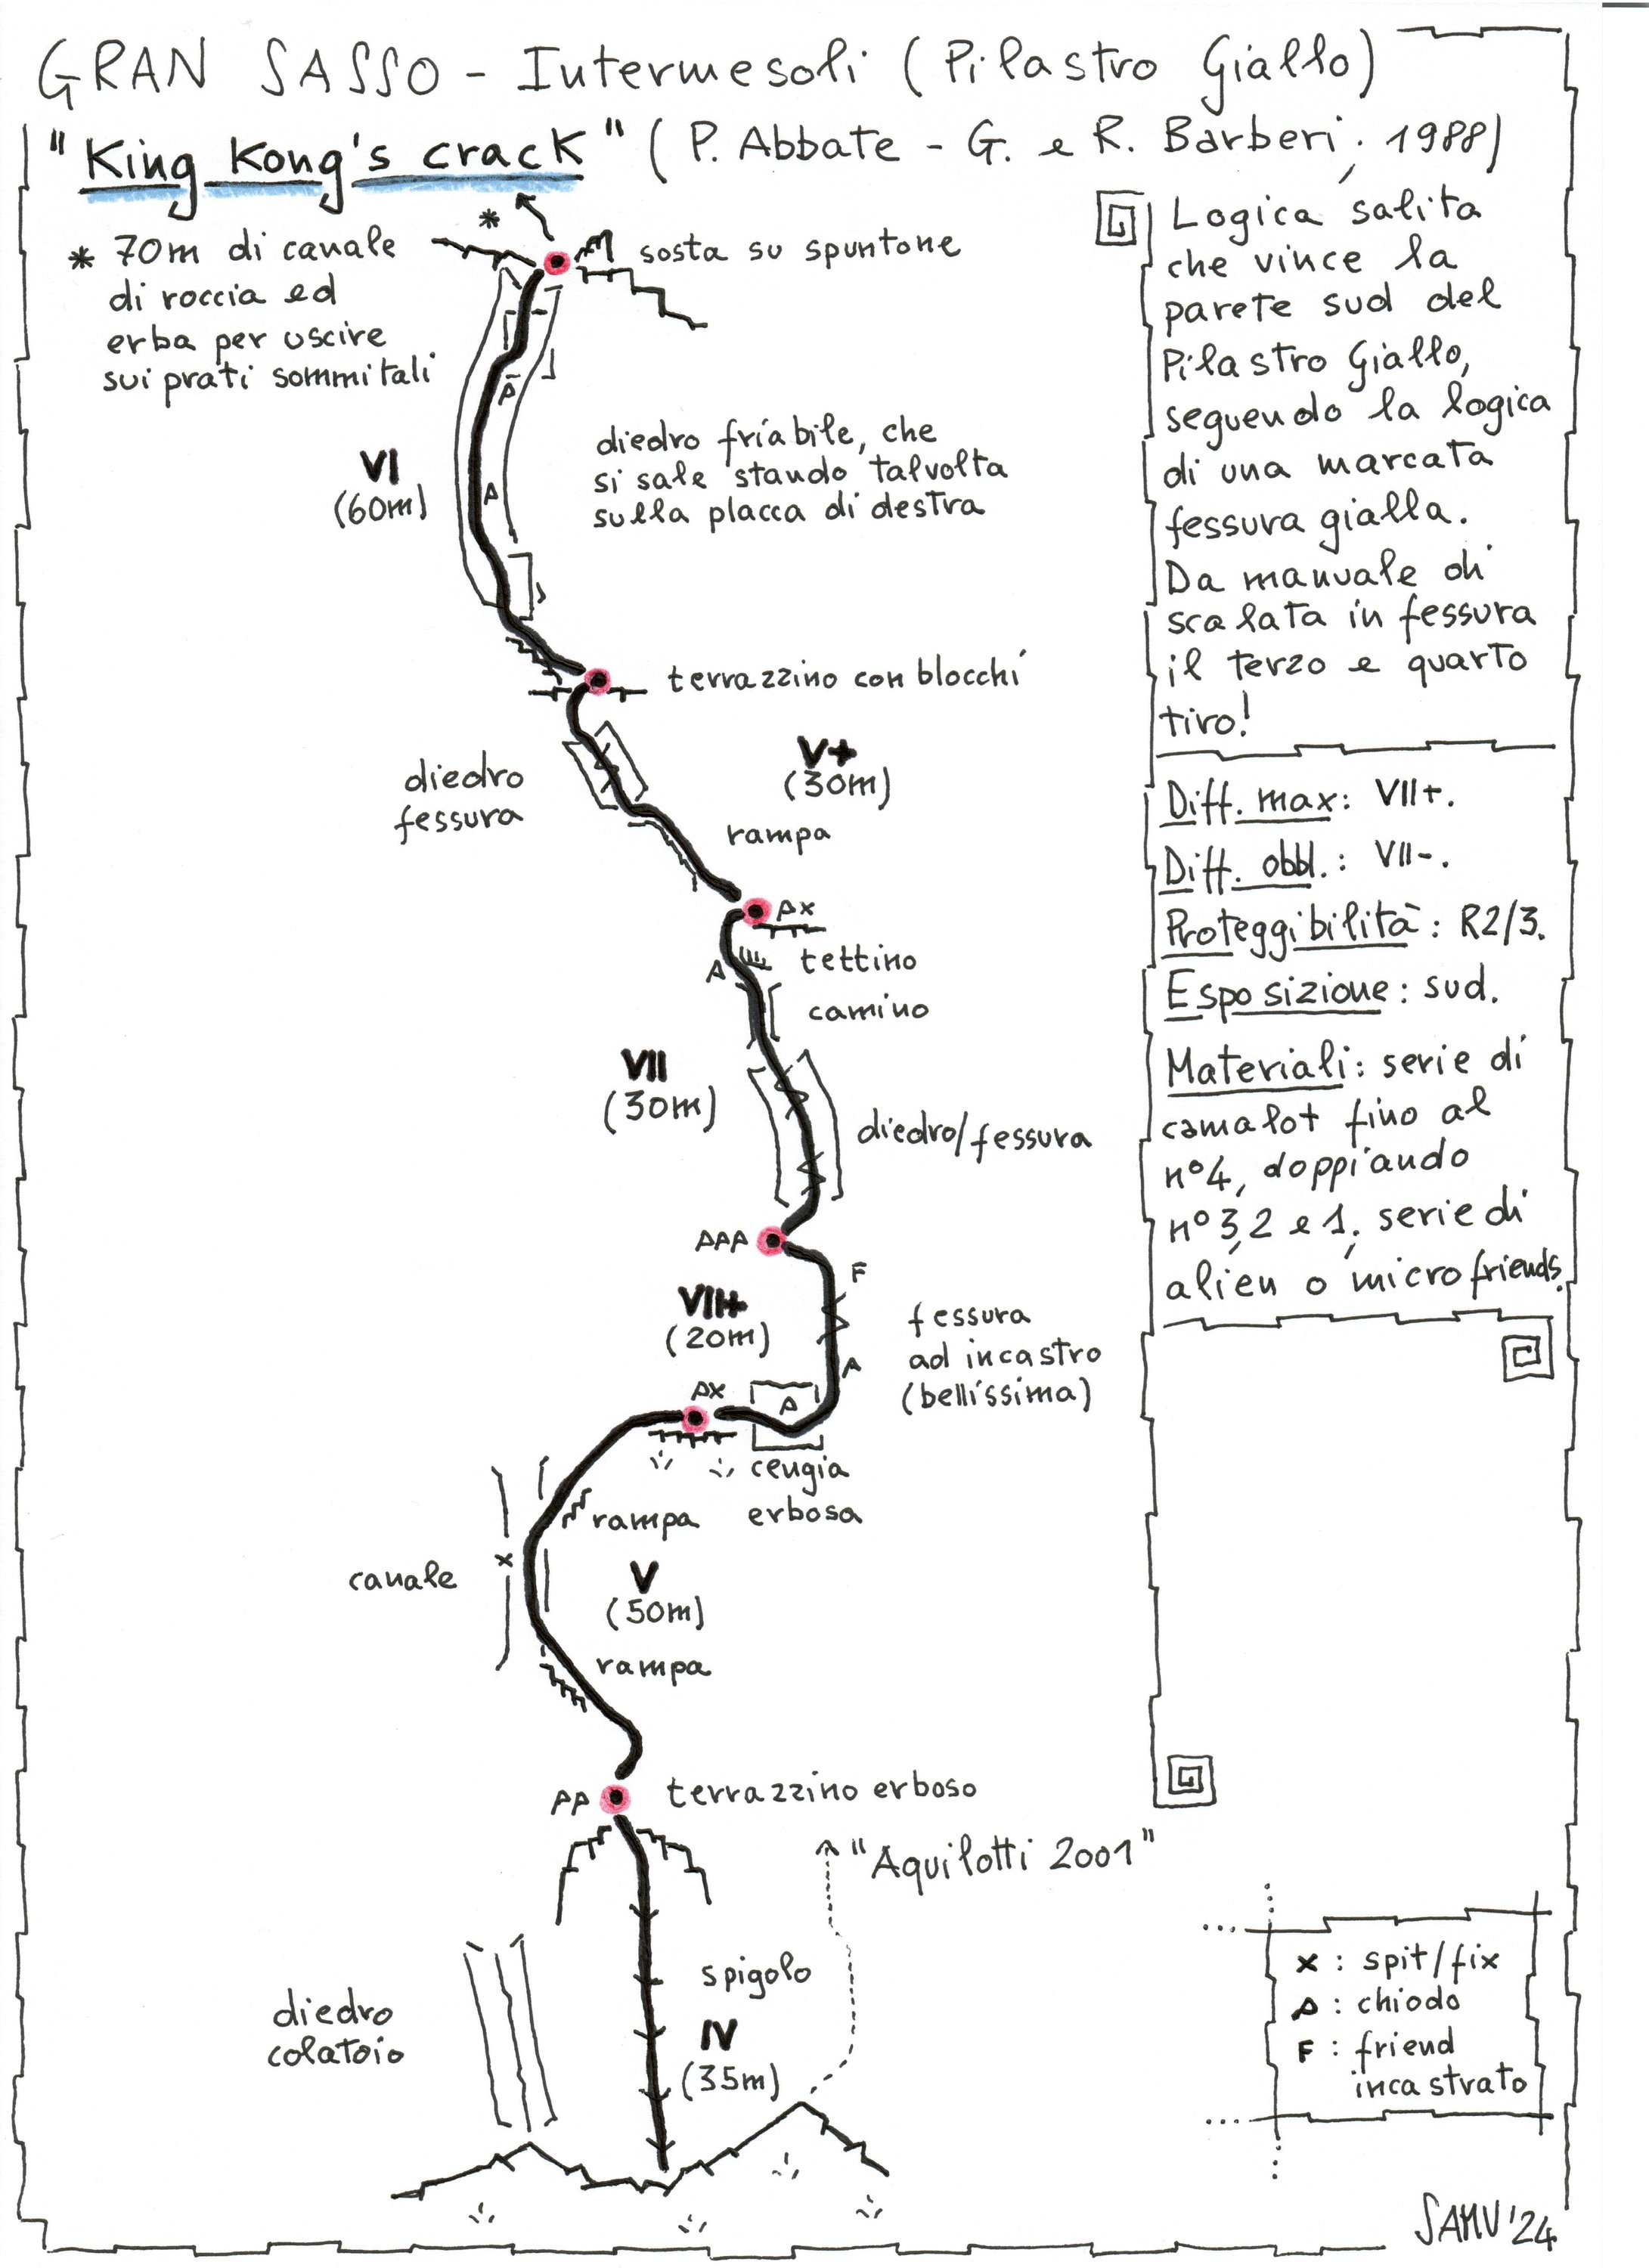 GRAN SASSO - Intermesoli (Pilastro Giallo)
"King Kong's crack" (P. Abbate - G. e R. Barberi, 1988)
*
* 70m di canale
di roccia ed
erba per uscire
sui prati sommitali
sosta su spuntone
P
VI
(60m)
P
diedro friabile, che
si sale stando talvolta
sulla placca di destra
terrazzino con blocchi
diedro
fessura
V+
(30m)
rampa
PX
P
tettino
camino
VII
(30m)
diedro/fessura
PPP
F
VII+
(20m)
fessura
ad incastro
(bellissima)
P
PX
P
cengia
erbosa
rampa
canale
x
V
(50m)
rampa
PP
terrazzino erboso
"Aquilotti 2001"
spigolo
IV
(35m)
diedro
colatoio
Logica salita
che vince la
parete sud del
Pilastro Giallo,
seguendo la logica
di una marcata
fessura gialla.
Da manuale di
scalata in fessura
il terzo e quarto
tiro!
Diff. max: VII+.
Diff. obbl.: VII-.
Proteggibilità: R2/3.
Esposizione: sud.
Materiali: serie di
camalot fino al
n°4, doppiando
n°3,2 e 1, serie di
alien o microfriends.
x : spit/fix
P : chiodo
F : friend
incastrato
SAMV'24